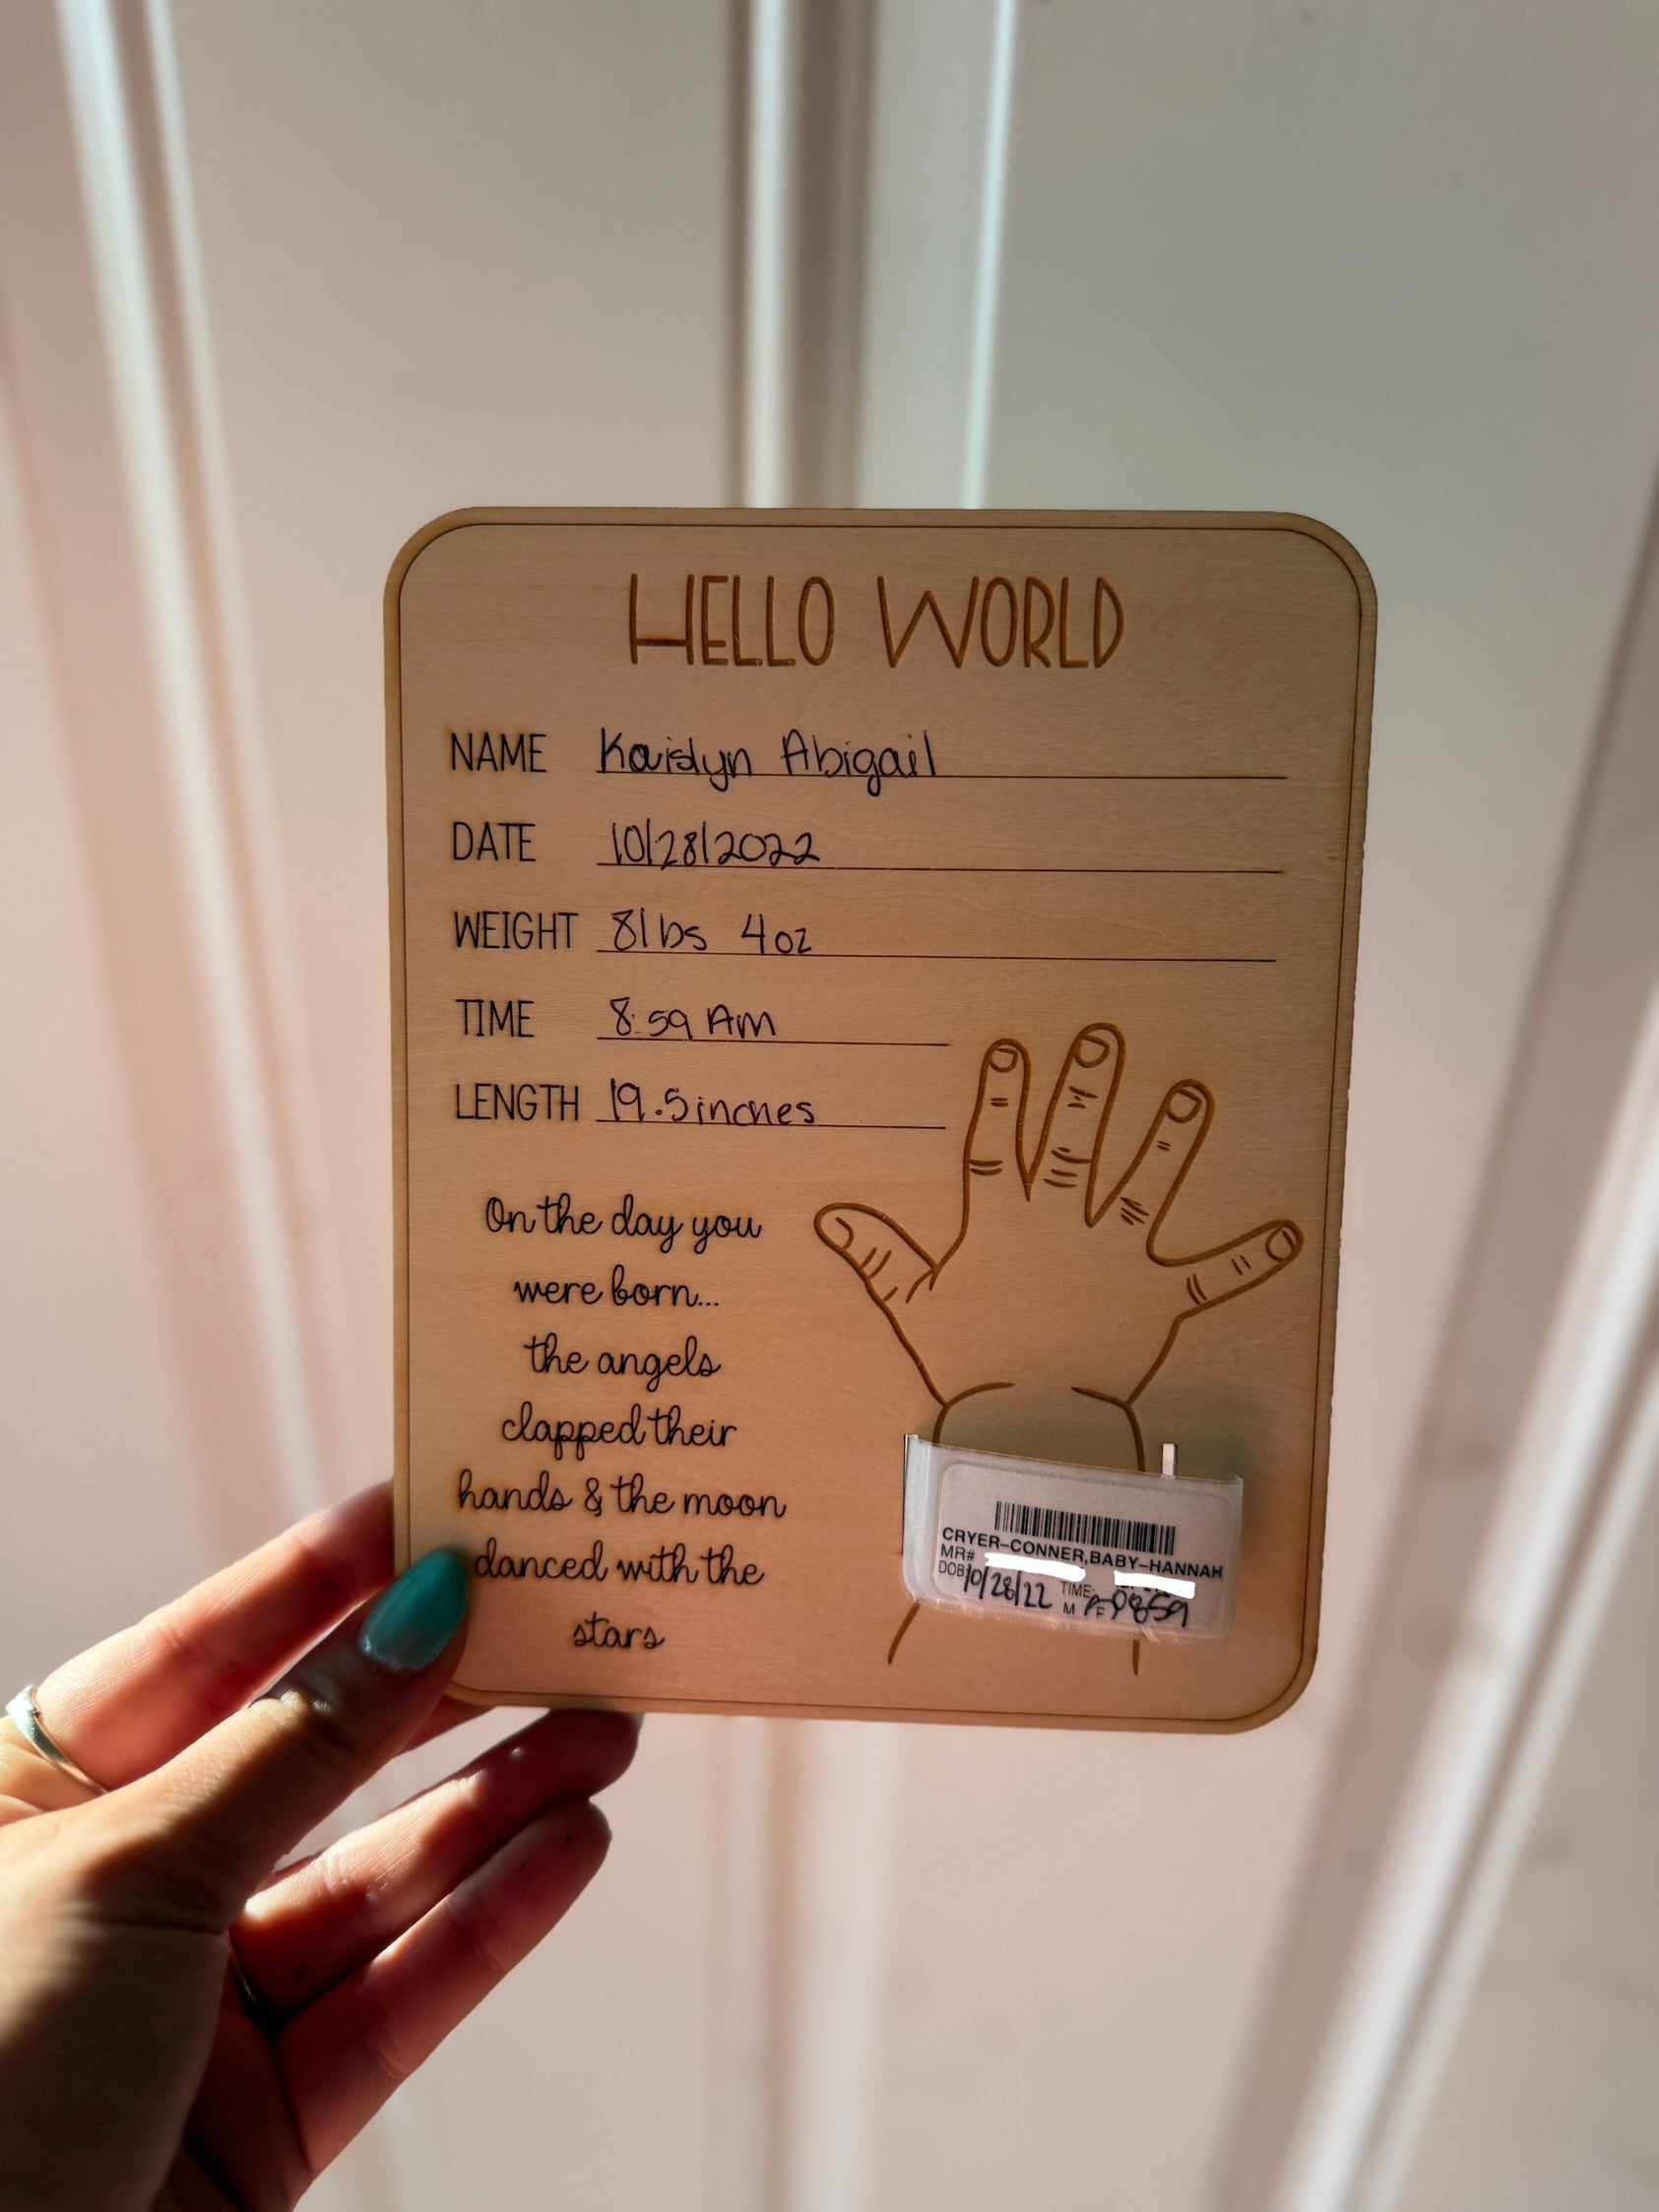 HELLO WORLD
NAME Kaislyn Abigail
DATE 10/28/2022
WEIGHT 8lbs 4oz
TIME 8:59 AM
LENGTH 19.5 inches
On the day you
were born...
the angels
clapped their
hands & the moon
danced with the
stars
CRYER-CONNER,BABY-HANNAH
MR#
DOB: 10/28/22 TIME: 0859
M F